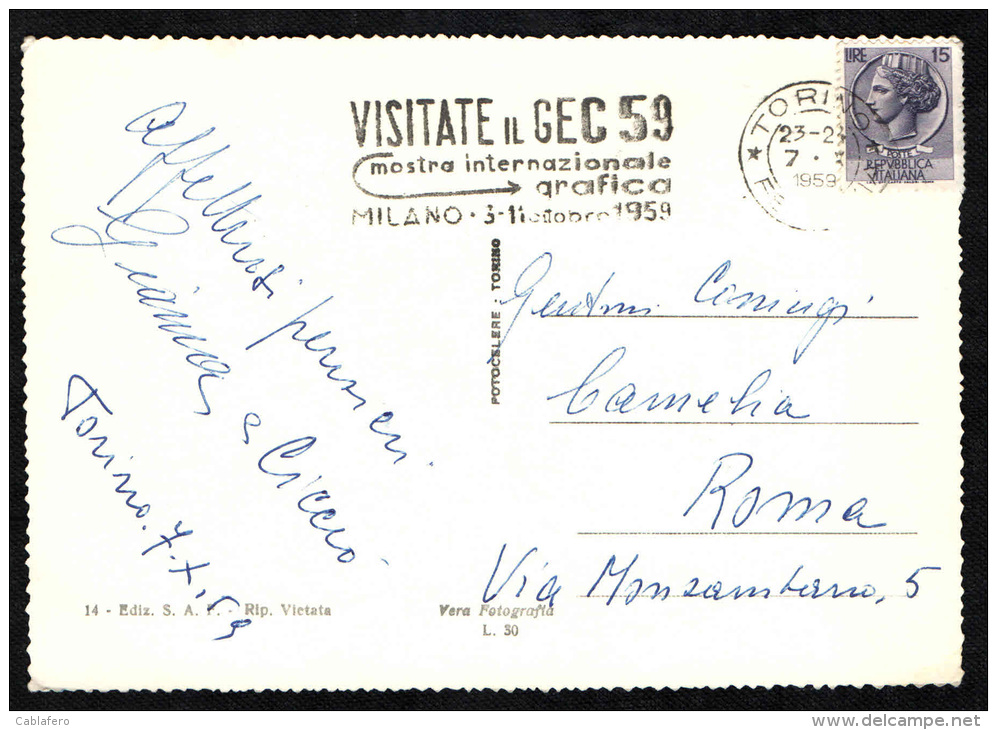 VISITATE IL GEC 59
mostra internazionale
grafica
MILANO • 3-11 ottobre 1959
TORINO
23-23
7
1959
LIRE 15
POSTE
REPVBBLICA
ITALIANA
Affettuosi pensieri.
Gianna e Ciccio.
Torino. 7.X.59
FOTOCELERE - TORINO
Gent.mi Coniugi
Camelia
Roma
Via Monzambano, 5
14 - Ediz. S. A. F. - Rip. Vietata
Vera Fotografia
L. 30
Cablafero
delcampe.net